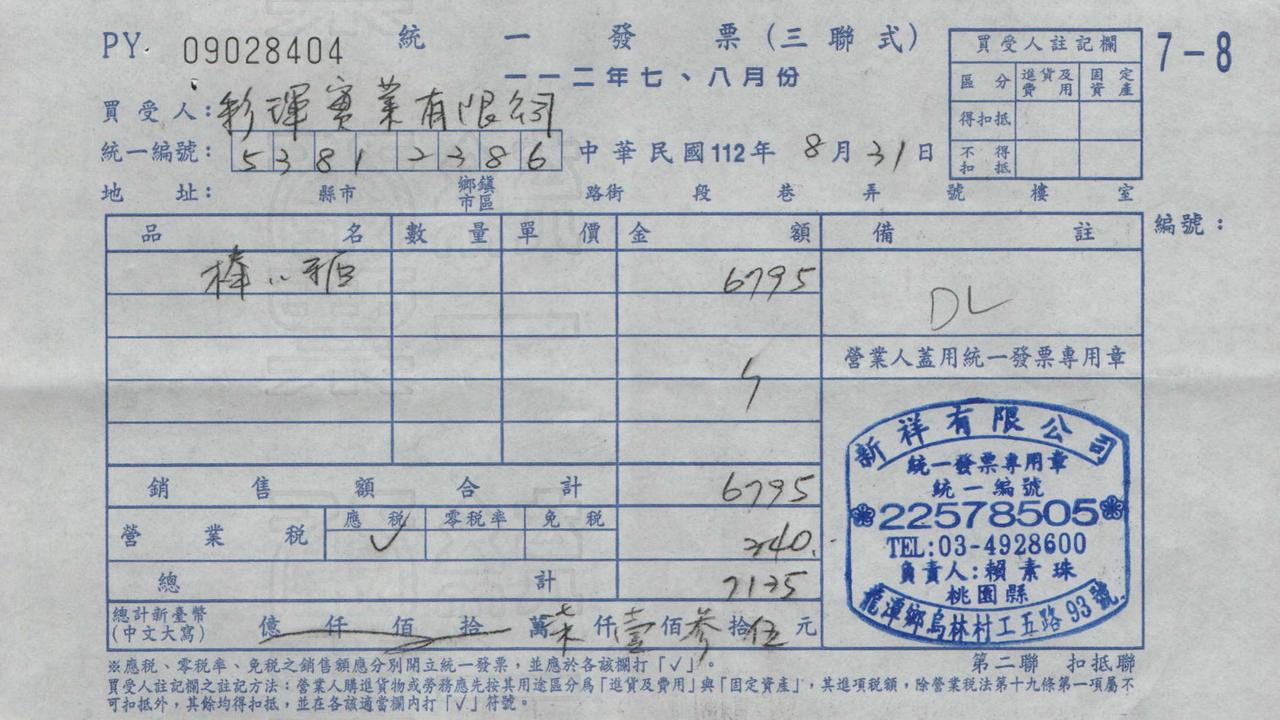 PY 09028404 統一發票(三聯式)
一一二年七、八月份
7-8
買受人註記欄
區分 進貨及費用 固定資產
得扣抵
不得扣抵
買受人:彩琿實業有限公司
統一編號: 53812386 中華民國112年8月31日
地址: 縣市 鄉鎮市區 路街 段 巷 弄 號 樓 室
編號:
品名 數量 單價 金額 備註
6795
DL
營業人蓋用統一發票專用章
銷售額合計 6795
營業稅 應稅 零稅率 免稅 ✓ 340
總計 7135
總計新臺幣(中文大寫) 億 仟 佰 拾 萬 柒 仟 壹 佰 參 拾 伍 元
新祥有限公司
統一發票專用章
統一編號
22578505
TEL:03-4928600
負責人:賴素珠
桃園縣
龍潭鄉烏林村工五路93號
※應稅、零稅率、免稅之銷售額應分別開立統一發票,並應於各該欄打「✓」。
第二聯 扣抵聯
買受人註記欄之註記方法:營業人購進貨物或勞務應先按其用途區分為「進貨及費用」與「固定資產」,其進項稅額,除營業稅法第十九條第一項屬不
可扣抵外,其餘均得扣抵,並在各該適當欄內打「✓」符號。